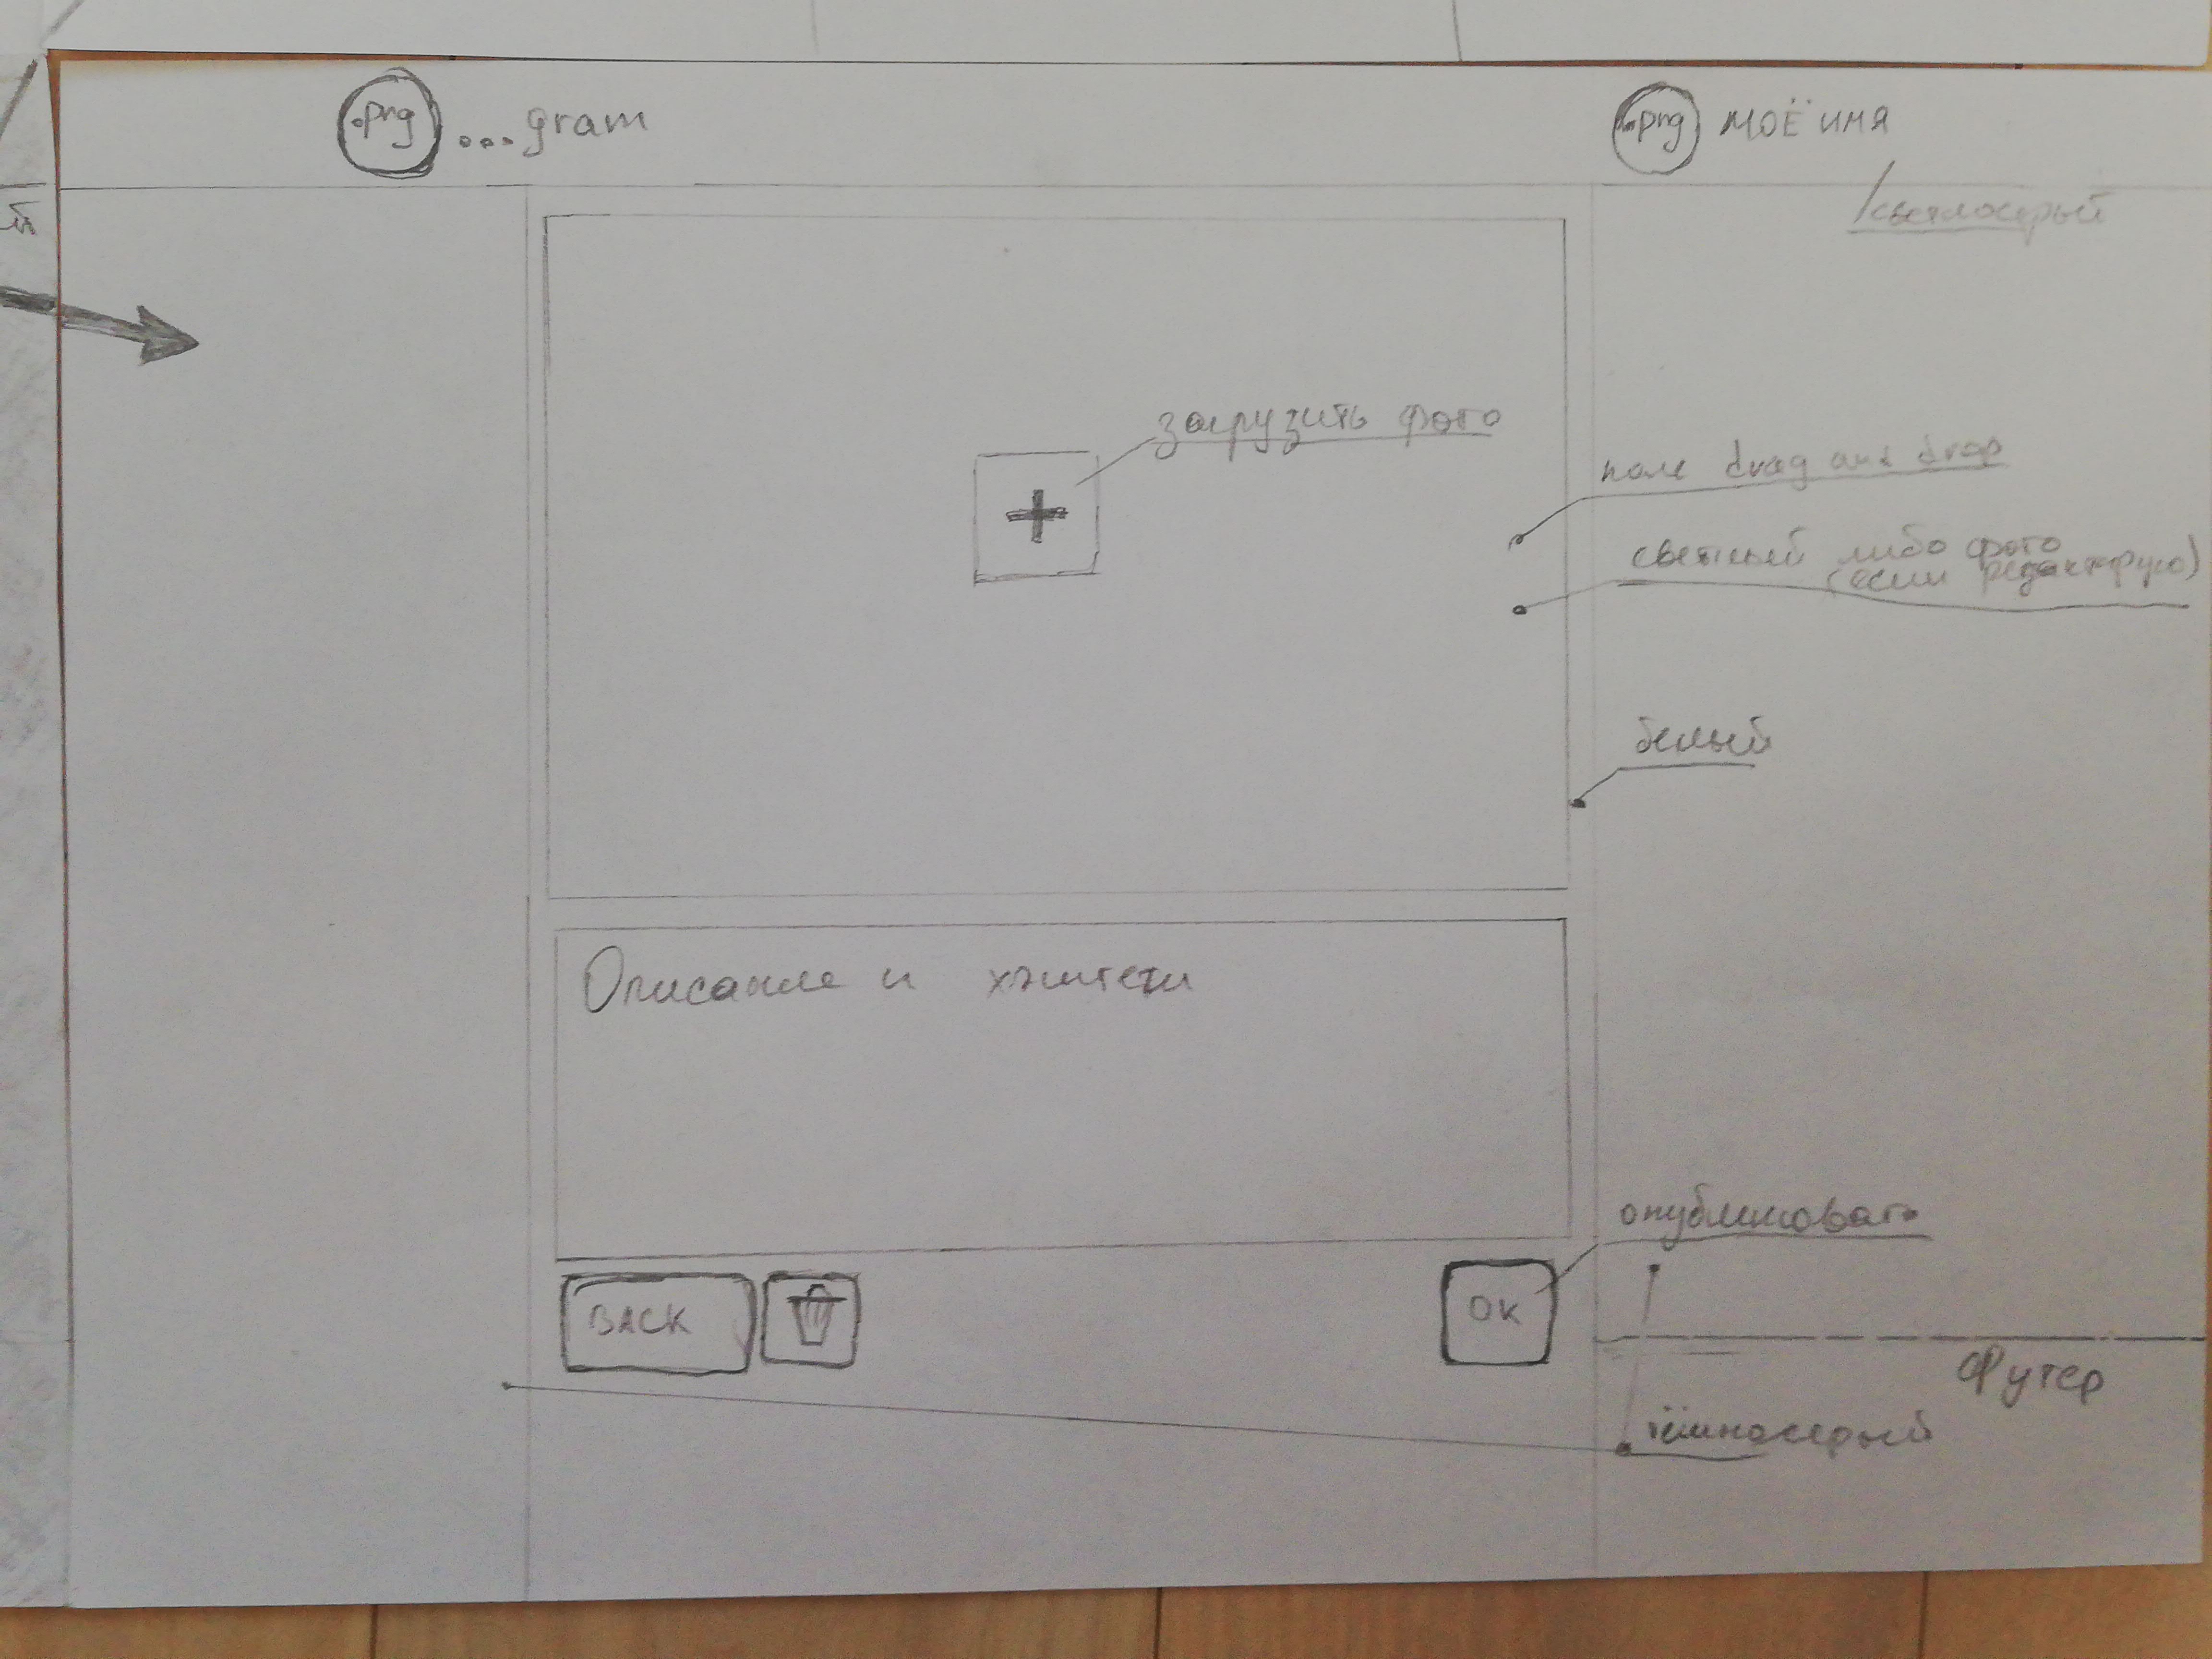 .png ...gram
.png моё имя
светлосерый
загрузить фото
поле drag and drop
светлый либо фото
(если редактирую)
белый
Описание и хэштеги
опубликовать
BACK
OK
Футер
тёмносерый